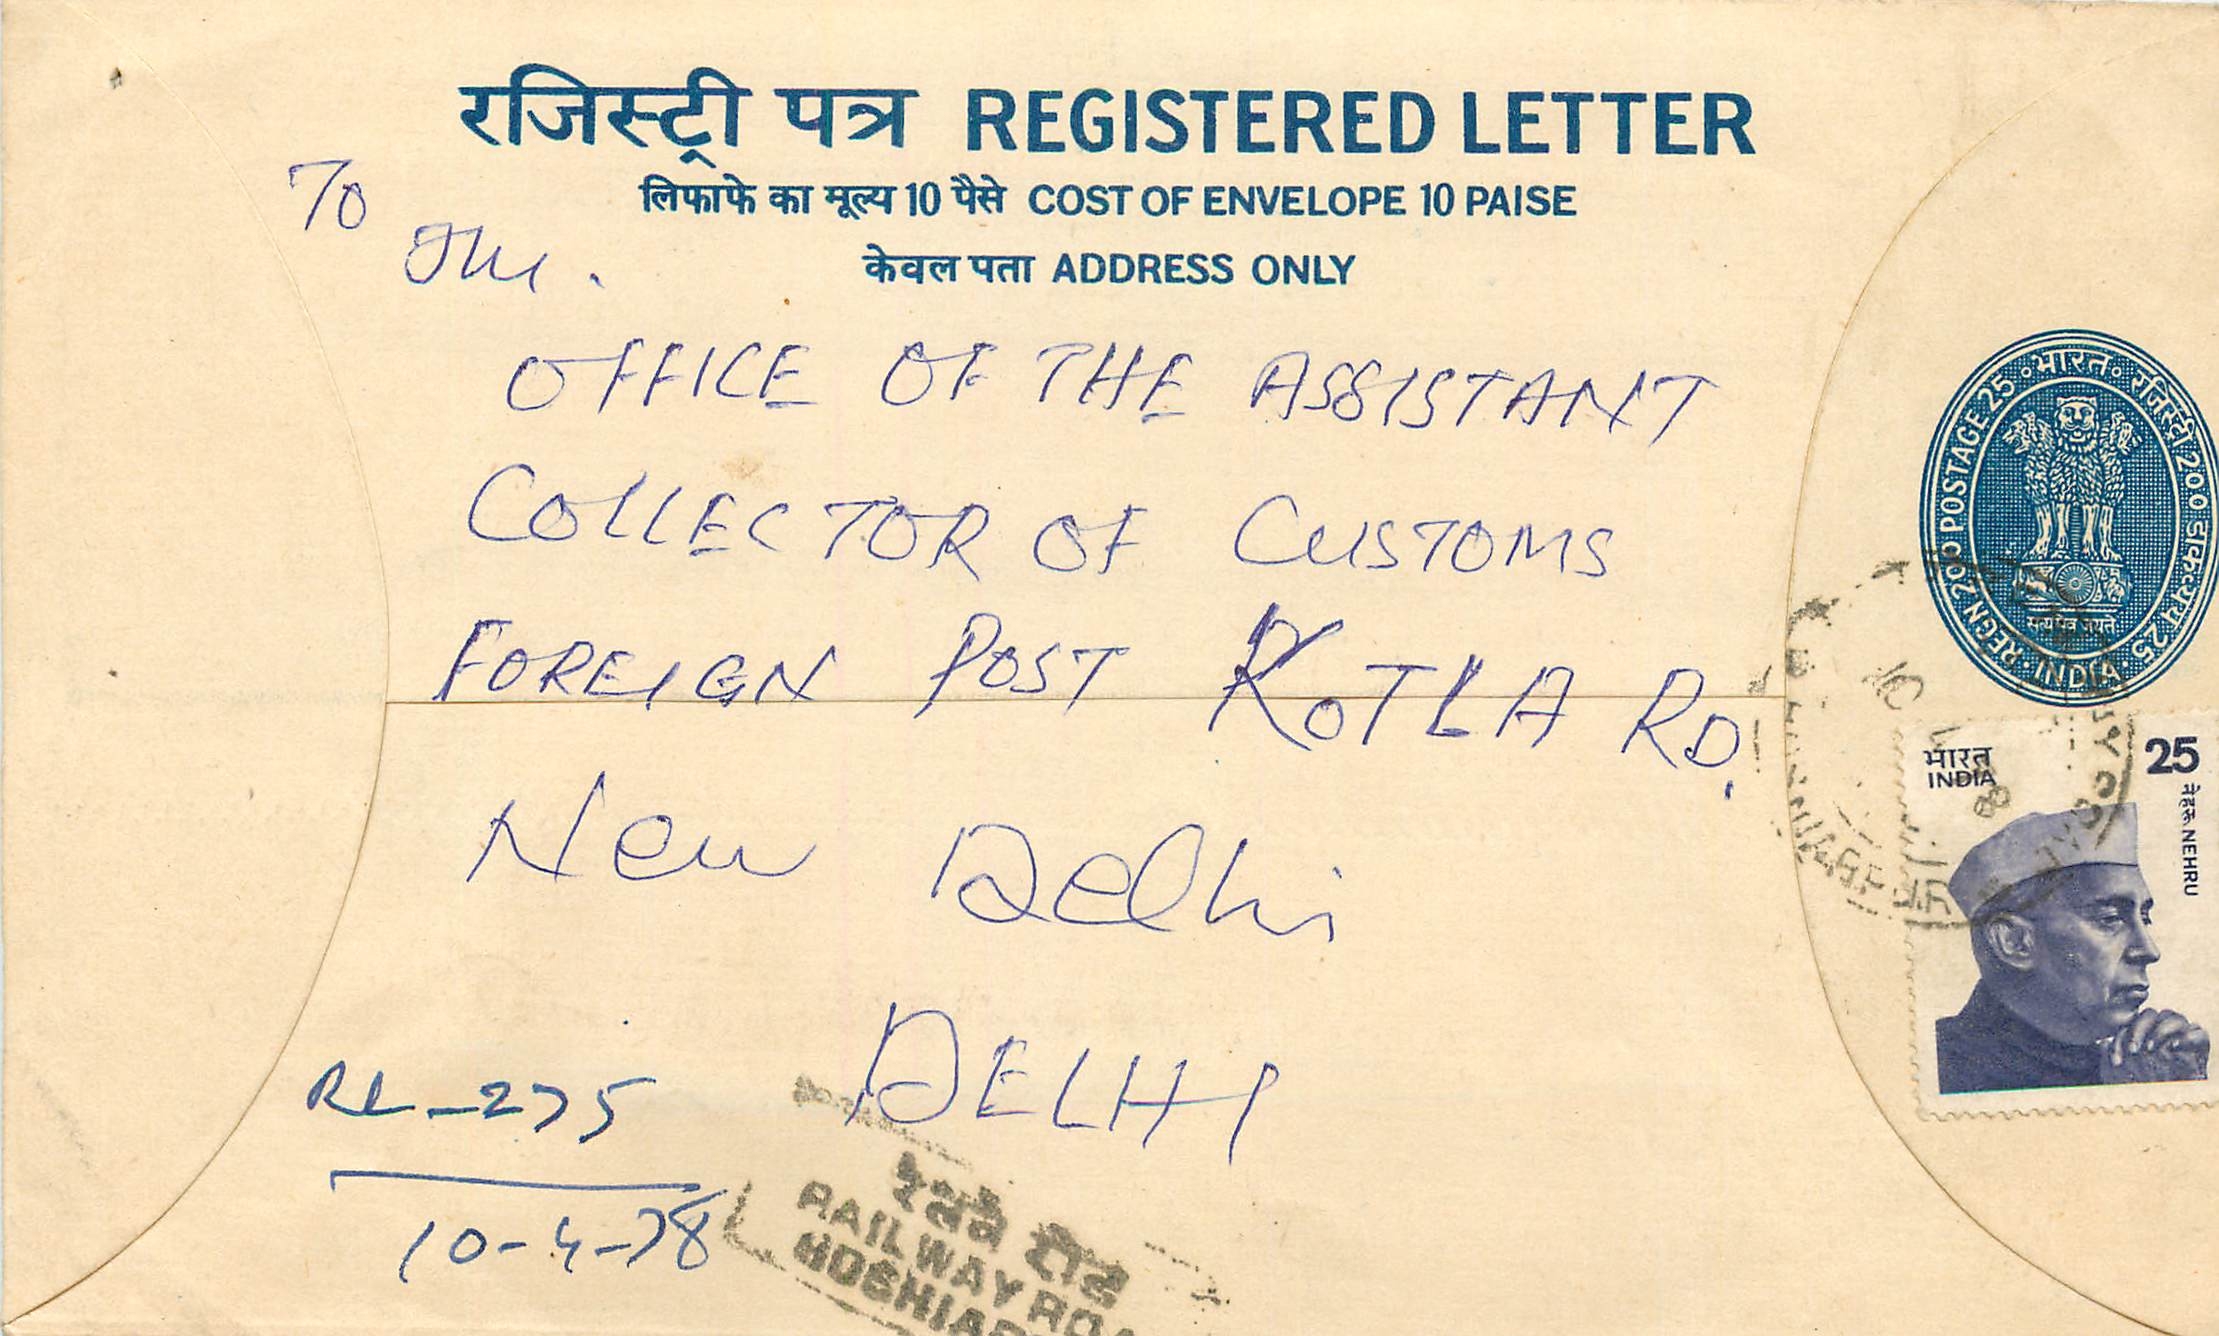 रजिस्ट्री पत्र REGISTERED LETTER
लिफाफे का मूल्य 10 पैसे COST OF ENVELOPE 10 PAISE
केवल पता ADDRESS ONLY
To
OFFICE OF THE ASSISTANT
COLLECTOR OF CUSTOMS
FOREIGN POST KOTLA RD.
New Delhi
DELHI
RL-275
10-4-78
रेलवे रोड
RAILWAY ROA
HOSHIAR
भारत रजिस्ट्री 200 डाक व्यय 25
REGN 200 POSTAGE 25
सत्यमेव जयते
INDIA
भारत
INDIA
25
नेहरू NEHRU